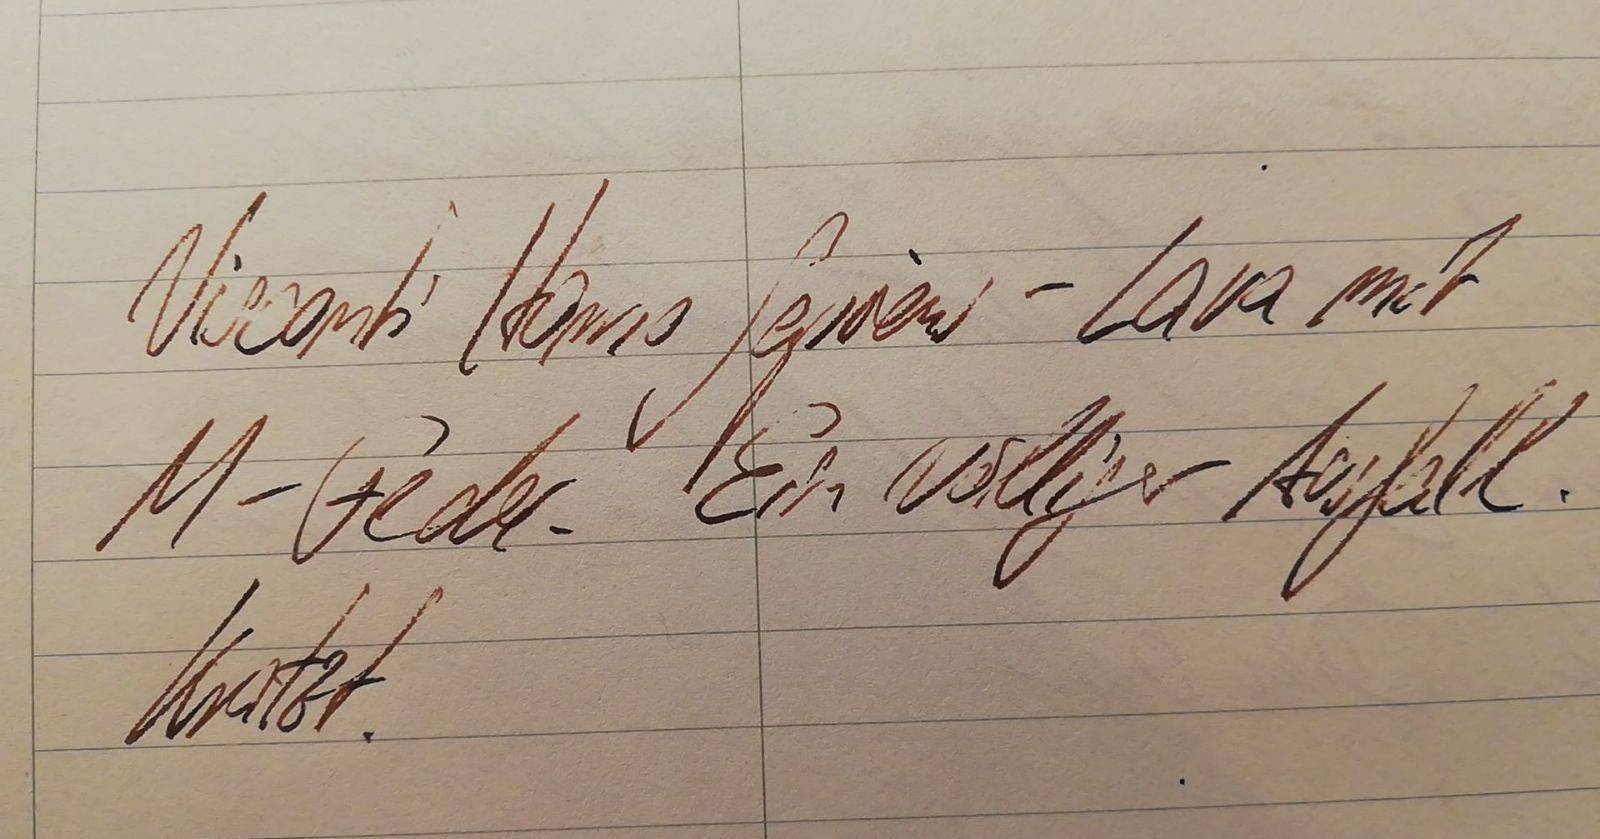 Visconti Homo Sapiens - Lava mit
M-Feder. Ein völliger Ausfall.
Kratzt.